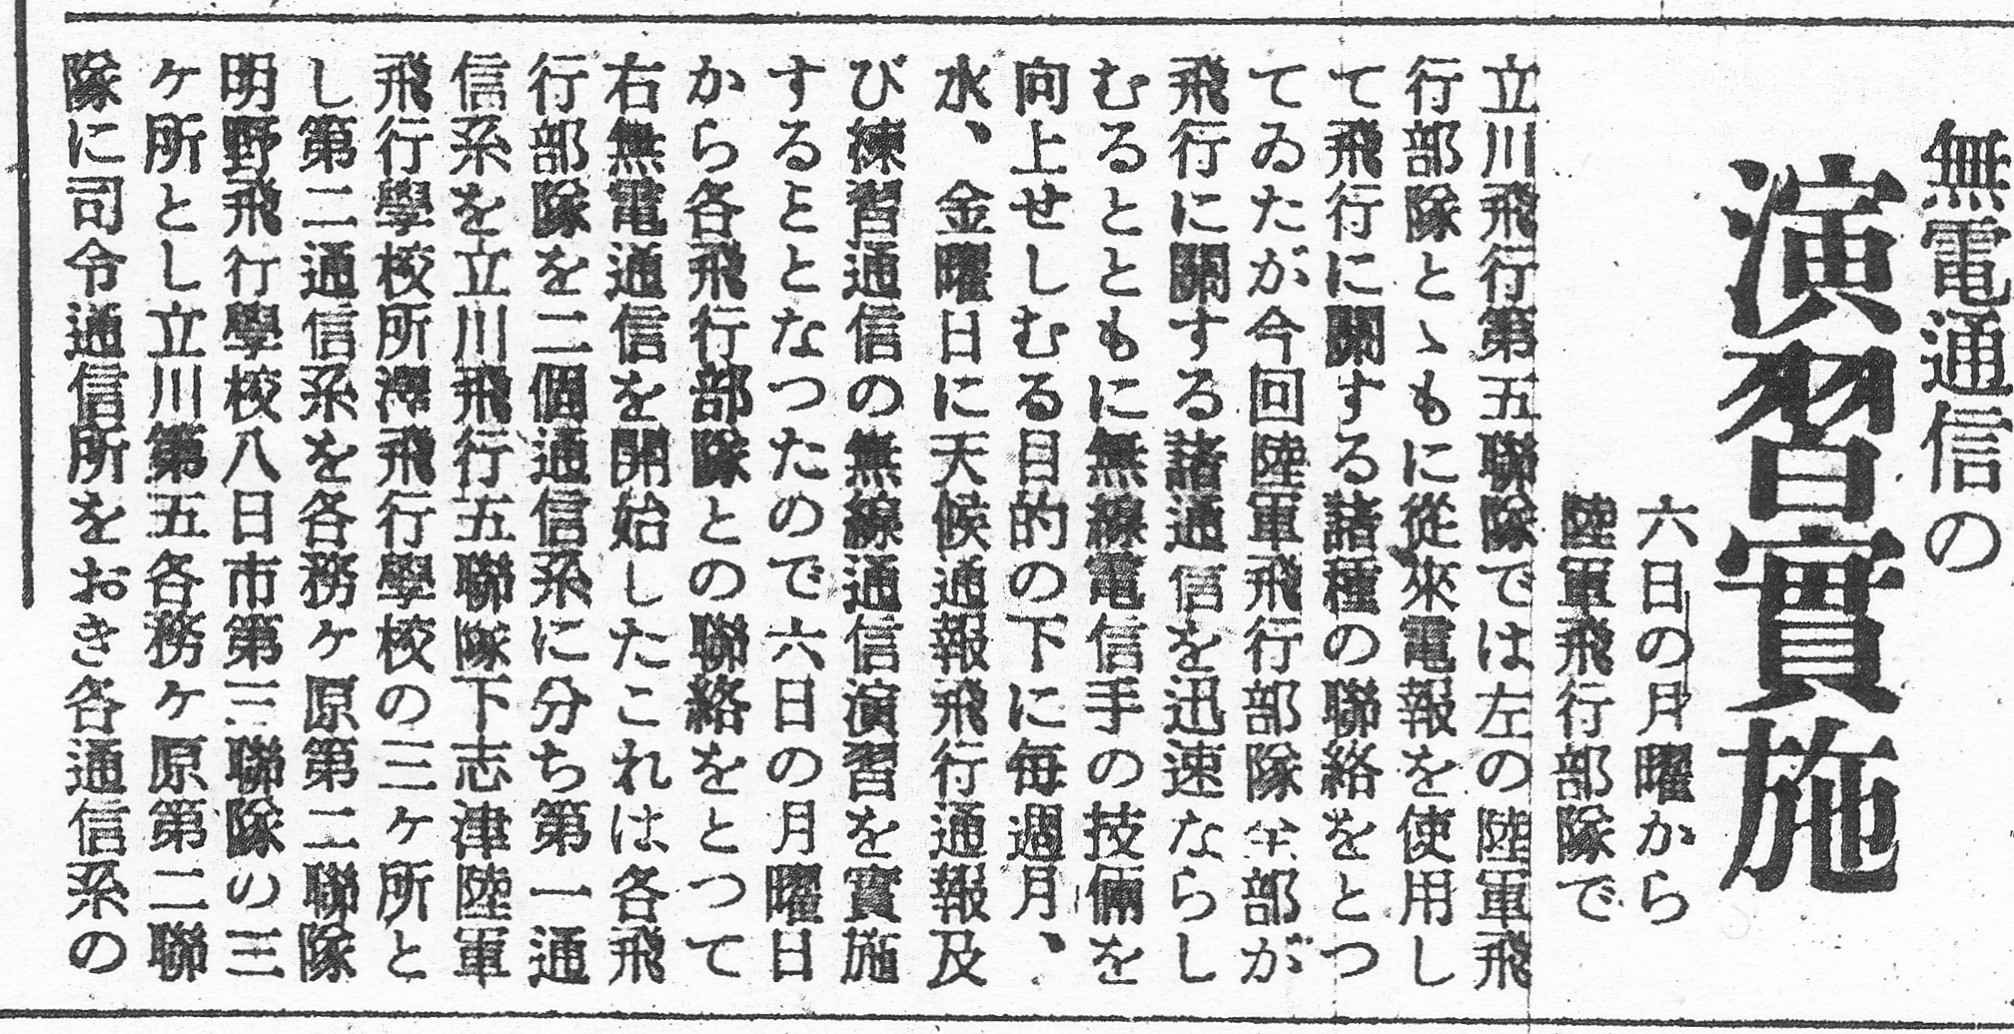 無電通信の
演習實施
六日の月曜から
陸軍飛行部隊で
立川飛行第五聯隊では左の陸軍飛
行部隊とゝもに從來電報を使用し
て飛行に關する諸種の聯絡をとつ
てゐたが今回陸軍飛行部隊全部が
飛行に關する諸通信を迅速ならし
むるとともに無線電信手の技倆を
向上せしむる目的の下に毎週月、
水、金曜日に天候通報飛行通報及
び練習通信の無線通信演習を實施
することとなつたので六日の月曜日
から各飛行部隊との聯絡をとつて
右無電通信を開始したこれは各飛
行部隊を二個通信系に分ち第一通
信系を立川飛行五聯隊下志津陸軍
飛行學校所澤飛行學校の三ヶ所と
し第二通信系を各務ヶ原第二聯隊
明野飛行學校八日市第三聯隊の三
ヶ所とし立川第五各務ヶ原第二聯
隊に司令通信所をおき各通信系の